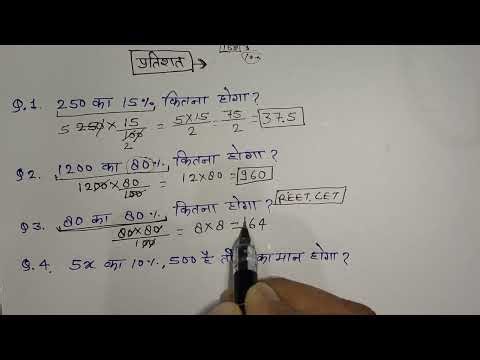 प्रतिशत →
Q.1. 250 का 15%, कितना होगा?
5 250 × 15/100 2 = 5×15/2 = 75/2 = 37.5
Q2. 1200 का 80%, कितना होगा?
1200×80/100 = 12×80 = 960
Q3. 80 का 80%, कितना होगा? REET, CET
80×80/100 = 8×8 = 64
Q.4. 5x का 10%, 500 है का मान होगा?